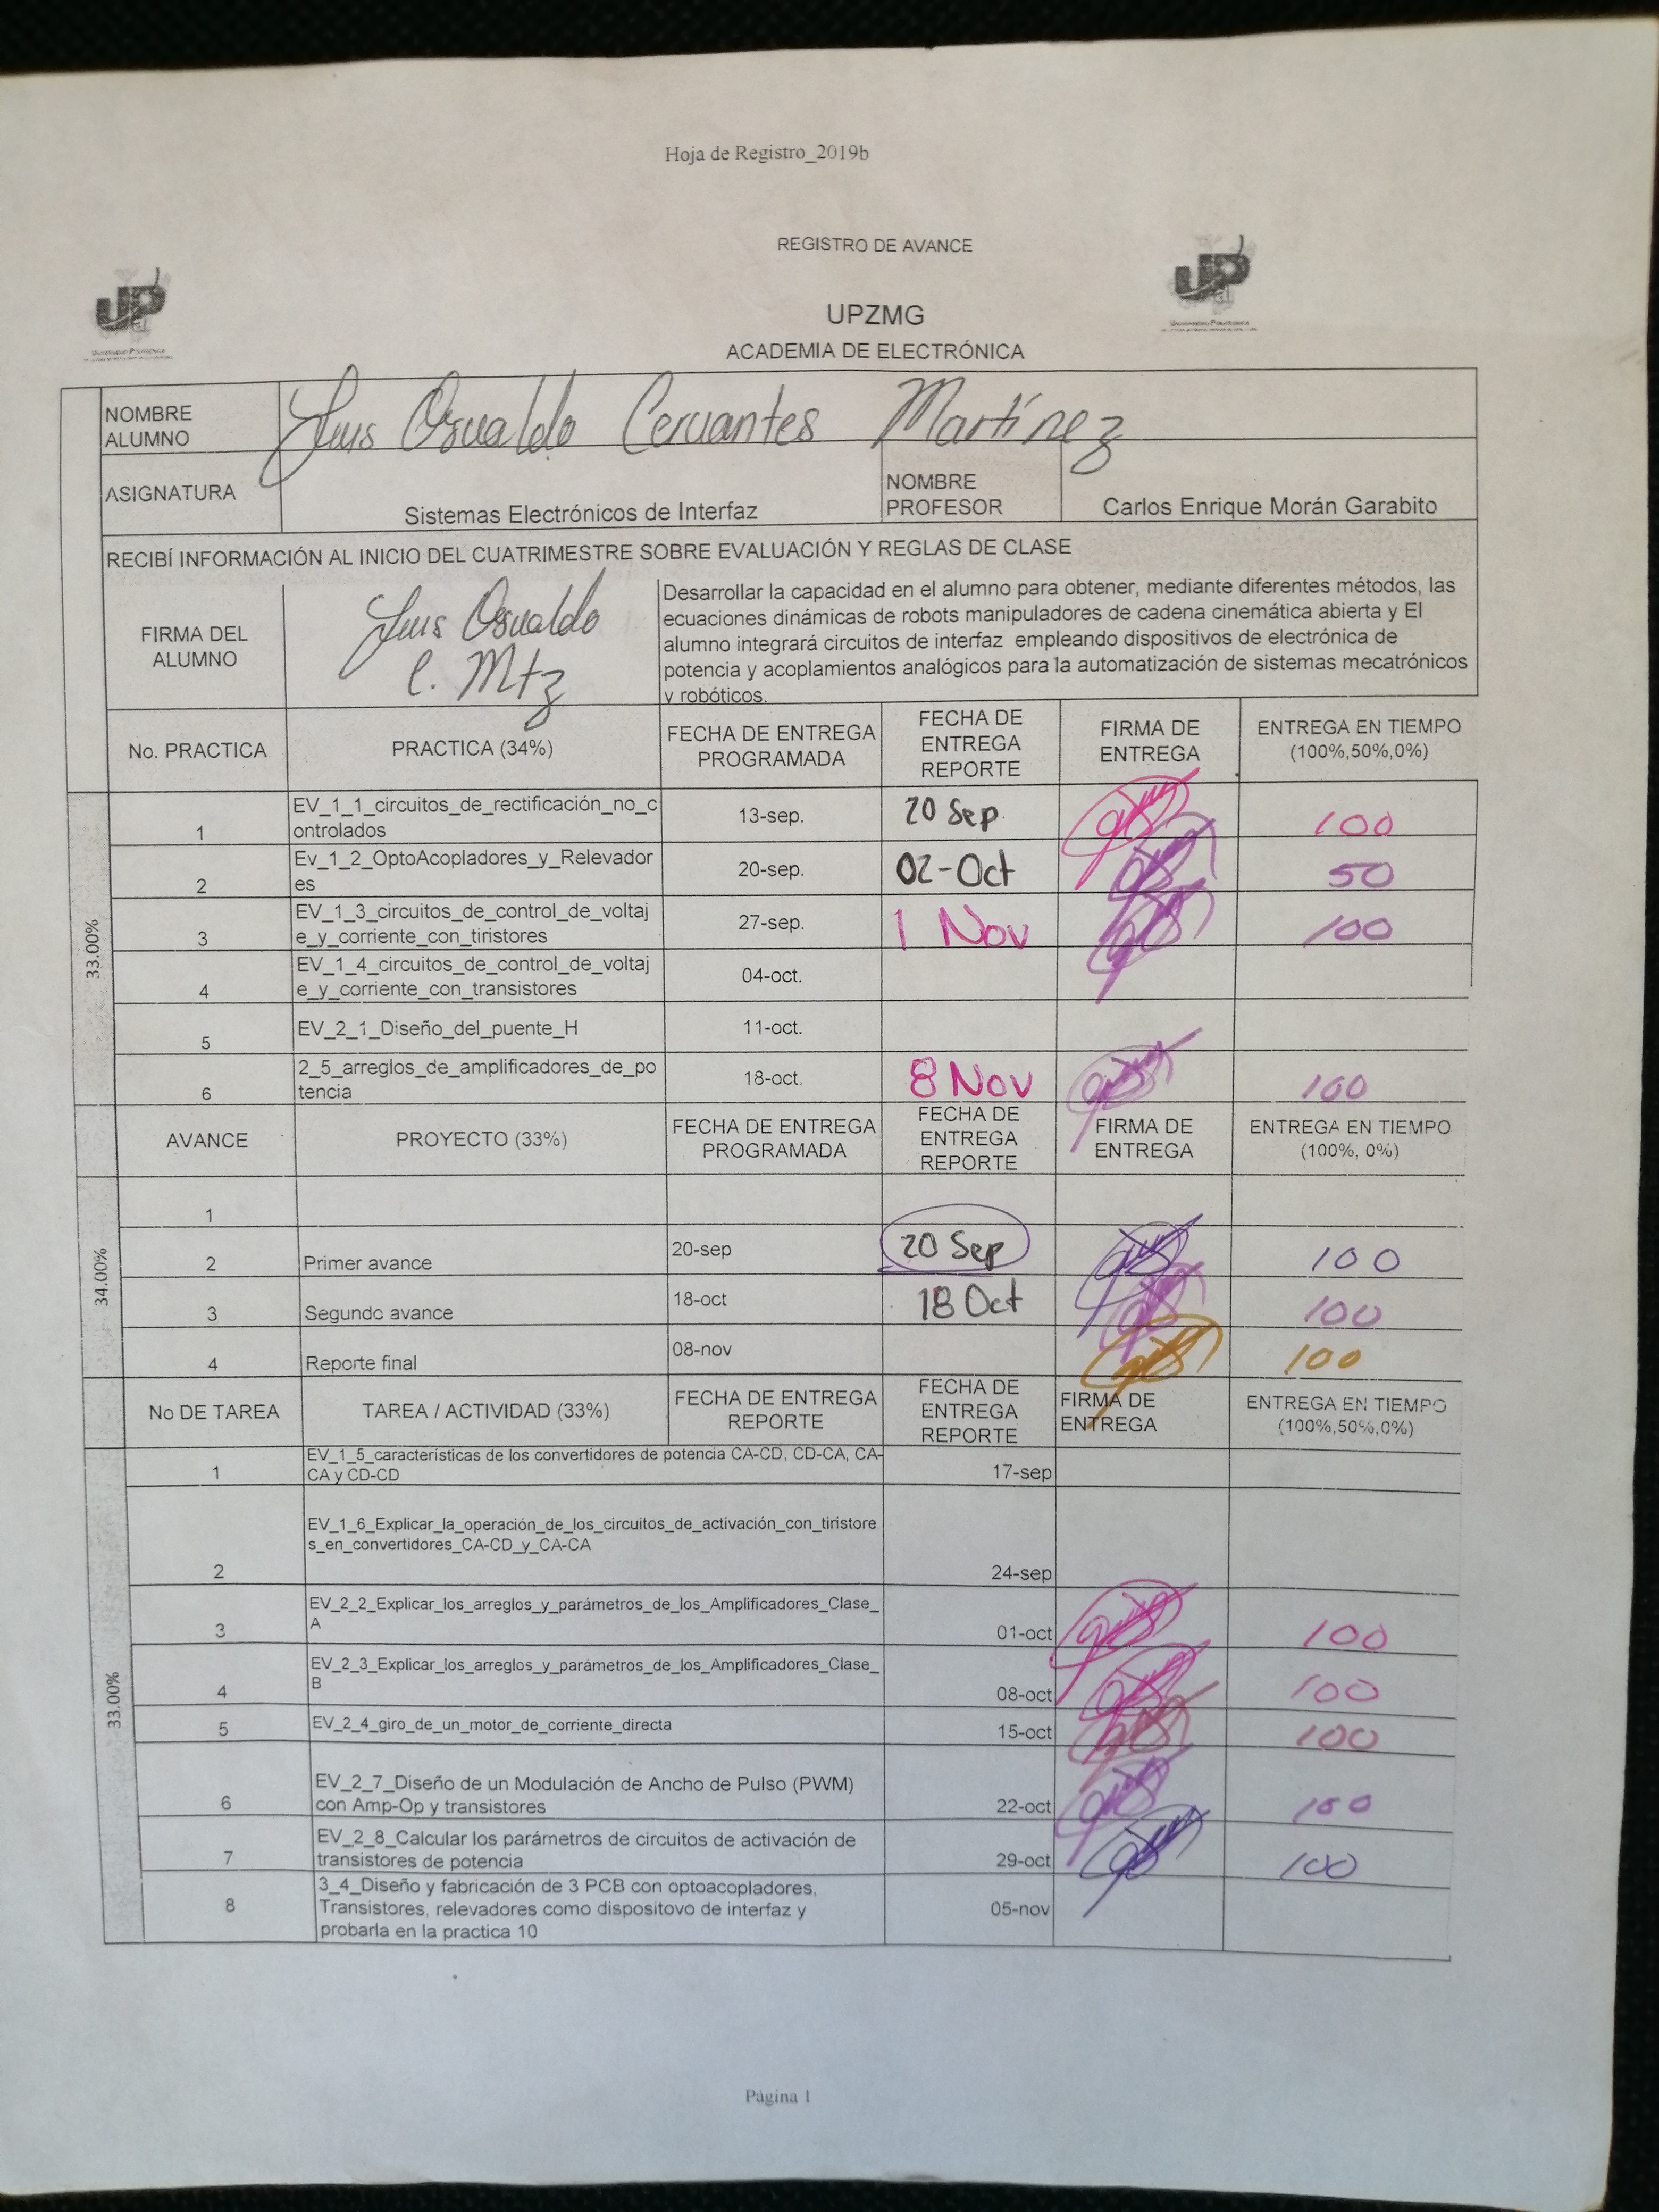 Hoja de Registro_2019b
REGISTRO DE AVANCE
UPZMG
ACADEMIA DE ELECTRÓNICA
NOMBRE ALUMNO Luis Osvaldo Cervantes Martínez
ASIGNATURA Sistemas Electrónicos de Interfaz NOMBRE PROFESOR Carlos Enrique Morán Garabito
RECIBÍ INFORMACIÓN AL INICIO DEL CUATRIMESTRE SOBRE EVALUACIÓN Y REGLAS DE CLASE
FIRMA DEL ALUMNO
Luis Osvaldo
C. Mtz
Desarrollar la capacidad en el alumno para obtener, mediante diferentes métodos, las
ecuaciones dinámicas de robots manipuladores de cadena cinemática abierta y El
alumno integrará circuitos de interfaz empleando dispositivos de electrónica de
potencia y acoplamientos analógicos para la automatización de sistemas mecatrónicos
y robóticos.
No. PRACTICA PRACTICA (34%) FECHA DE ENTREGA PROGRAMADA FECHA DE ENTREGA REPORTE FIRMA DE ENTREGA ENTREGA EN TIEMPO (100%,50%,0%)
33.00%
1 EV_1_1_circuitos_de_rectificación_no_c
ontrolados 13-sep. 20 Sep. 100
2 Ev_1_2_OptoAcopladores_y_Relevador
es 20-sep. 02-Oct 50
3 EV_1_3_circuitos_de_control_de_voltaj
e_y_corriente_con_tiristores 27-sep. 1 Nov 100
4 EV_1_4_circuitos_de_control_de_voltaj
e_y_corriente_con_transistores 04-oct.
5 EV_2_1_Diseño_del_puente_H 11-oct.
6 2_5_arreglos_de_amplificadores_de_po
tencia 18-oct. 8 Nov 100
AVANCE PROYECTO (33%) FECHA DE ENTREGA PROGRAMADA FECHA DE ENTREGA REPORTE FIRMA DE ENTREGA ENTREGA EN TIEMPO (100%, 0%)
34.00%
1
2 Primer avance 20-sep 20 Sep 100
3 Segundo avance 18-oct 18 Oct 100
4 Reporte final 08-nov 100
No DE TAREA TAREA / ACTIVIDAD (33%) FECHA DE ENTREGA REPORTE FECHA DE ENTREGA REPORTE FIRMA DE ENTREGA ENTREGA EN TIEMPO (100%,50%,0%)
33.00%
1 EV_1_5_características de los convertidores de potencia CA-CD, CD-CA, CA-
CA y CD-CD 17-sep
2 EV_1_6_Explicar_la_operación_de_los_circuitos_de_activación_con_tiristore
s_en_convertidores_CA-CD_y_CA-CA 24-sep
3 EV_2_2_Explicar_los_arreglos_y_parámetros_de_los_Amplificadores_Clase_
A 01-oct 100
4 EV_2_3_Explicar_los_arreglos_y_parámetros_de_los_Amplificadores_Clase_
B 08-oct 100
5 EV_2_4_giro_de_un_motor_de_corriente_directa 15-oct 100
6 EV_2_7_Diseño de un Modulación de Ancho de Pulso (PWM)
con Amp-Op y transistores 22-oct 100
7 EV_2_8_Calcular los parámetros de circuitos de activación de
transistores de potencia 29-oct 100
8 3_4_Diseño y fabricación de 3 PCB con optoacopladores,
Transistores, relevadores como dispositovo de interfaz y
probarla en la practica 10 05-nov
Página 1